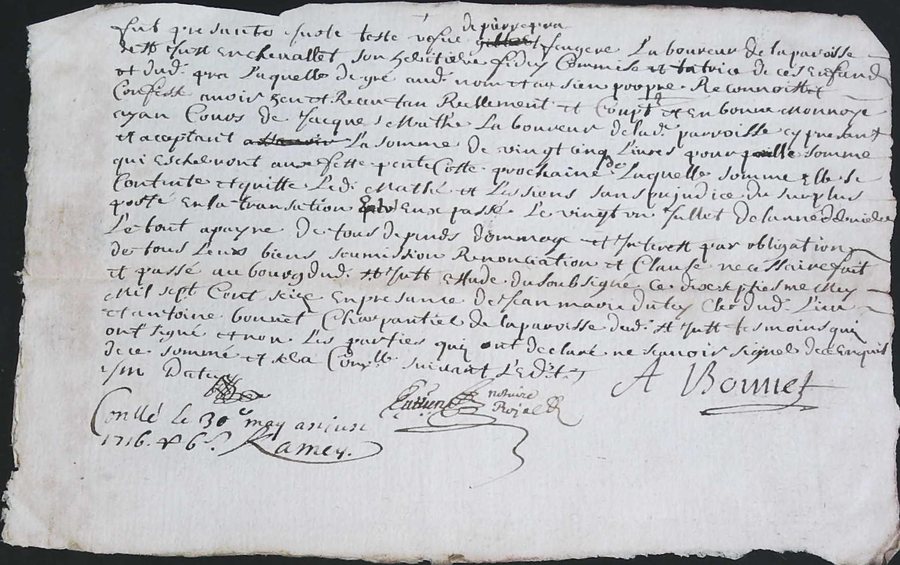 fut presante justo teste vefue de pierre fougere Laboureur de la paroisse
de St Just en chevallet son heritiere fiduciere Commise et tutrice de ces Enfands
et dud. pra Laquelle de gré aud. nom et au sien propre Reconnoist et
Confesse avoir heu et Receu tan Reellement et Compt en bonne monnoye
ayan Cours de Jacque Mathé Laboureur de lad. parroisse cy present
et acceptant La somme de vingt cinq Livres pour somme
qui Escheront aux feste pentecoste prochaine de Laquelle somme elle se
Contente et quitte Led. Mathé et Les siens sans prejudice du surplus
porté En la transation Entre Eux passé Le vingt un juillet de lannée derniere
Le tout a payne de tous depends dommage et Interest par obligation
de tous Leurs biens soumission Renonciation et Clause necessaire fait
et passé au bourg dud. St Just Estude du soubsigné ce dixseptiesme May
Mil sept Cent seize En presance de Jean marie Cler dud. Lieu
et antoine bonnet Charpantier de la paroisse dud. St Just tesmoins qui
ont signé et non Les parties qui ont declaré ne scavoir signer de ce Enquis
de ce sommé et sera Conllé suivant L'edit
A Bonnet
notaire
Royal
Conllé le 30e may
1716. 6 s. Ramey.